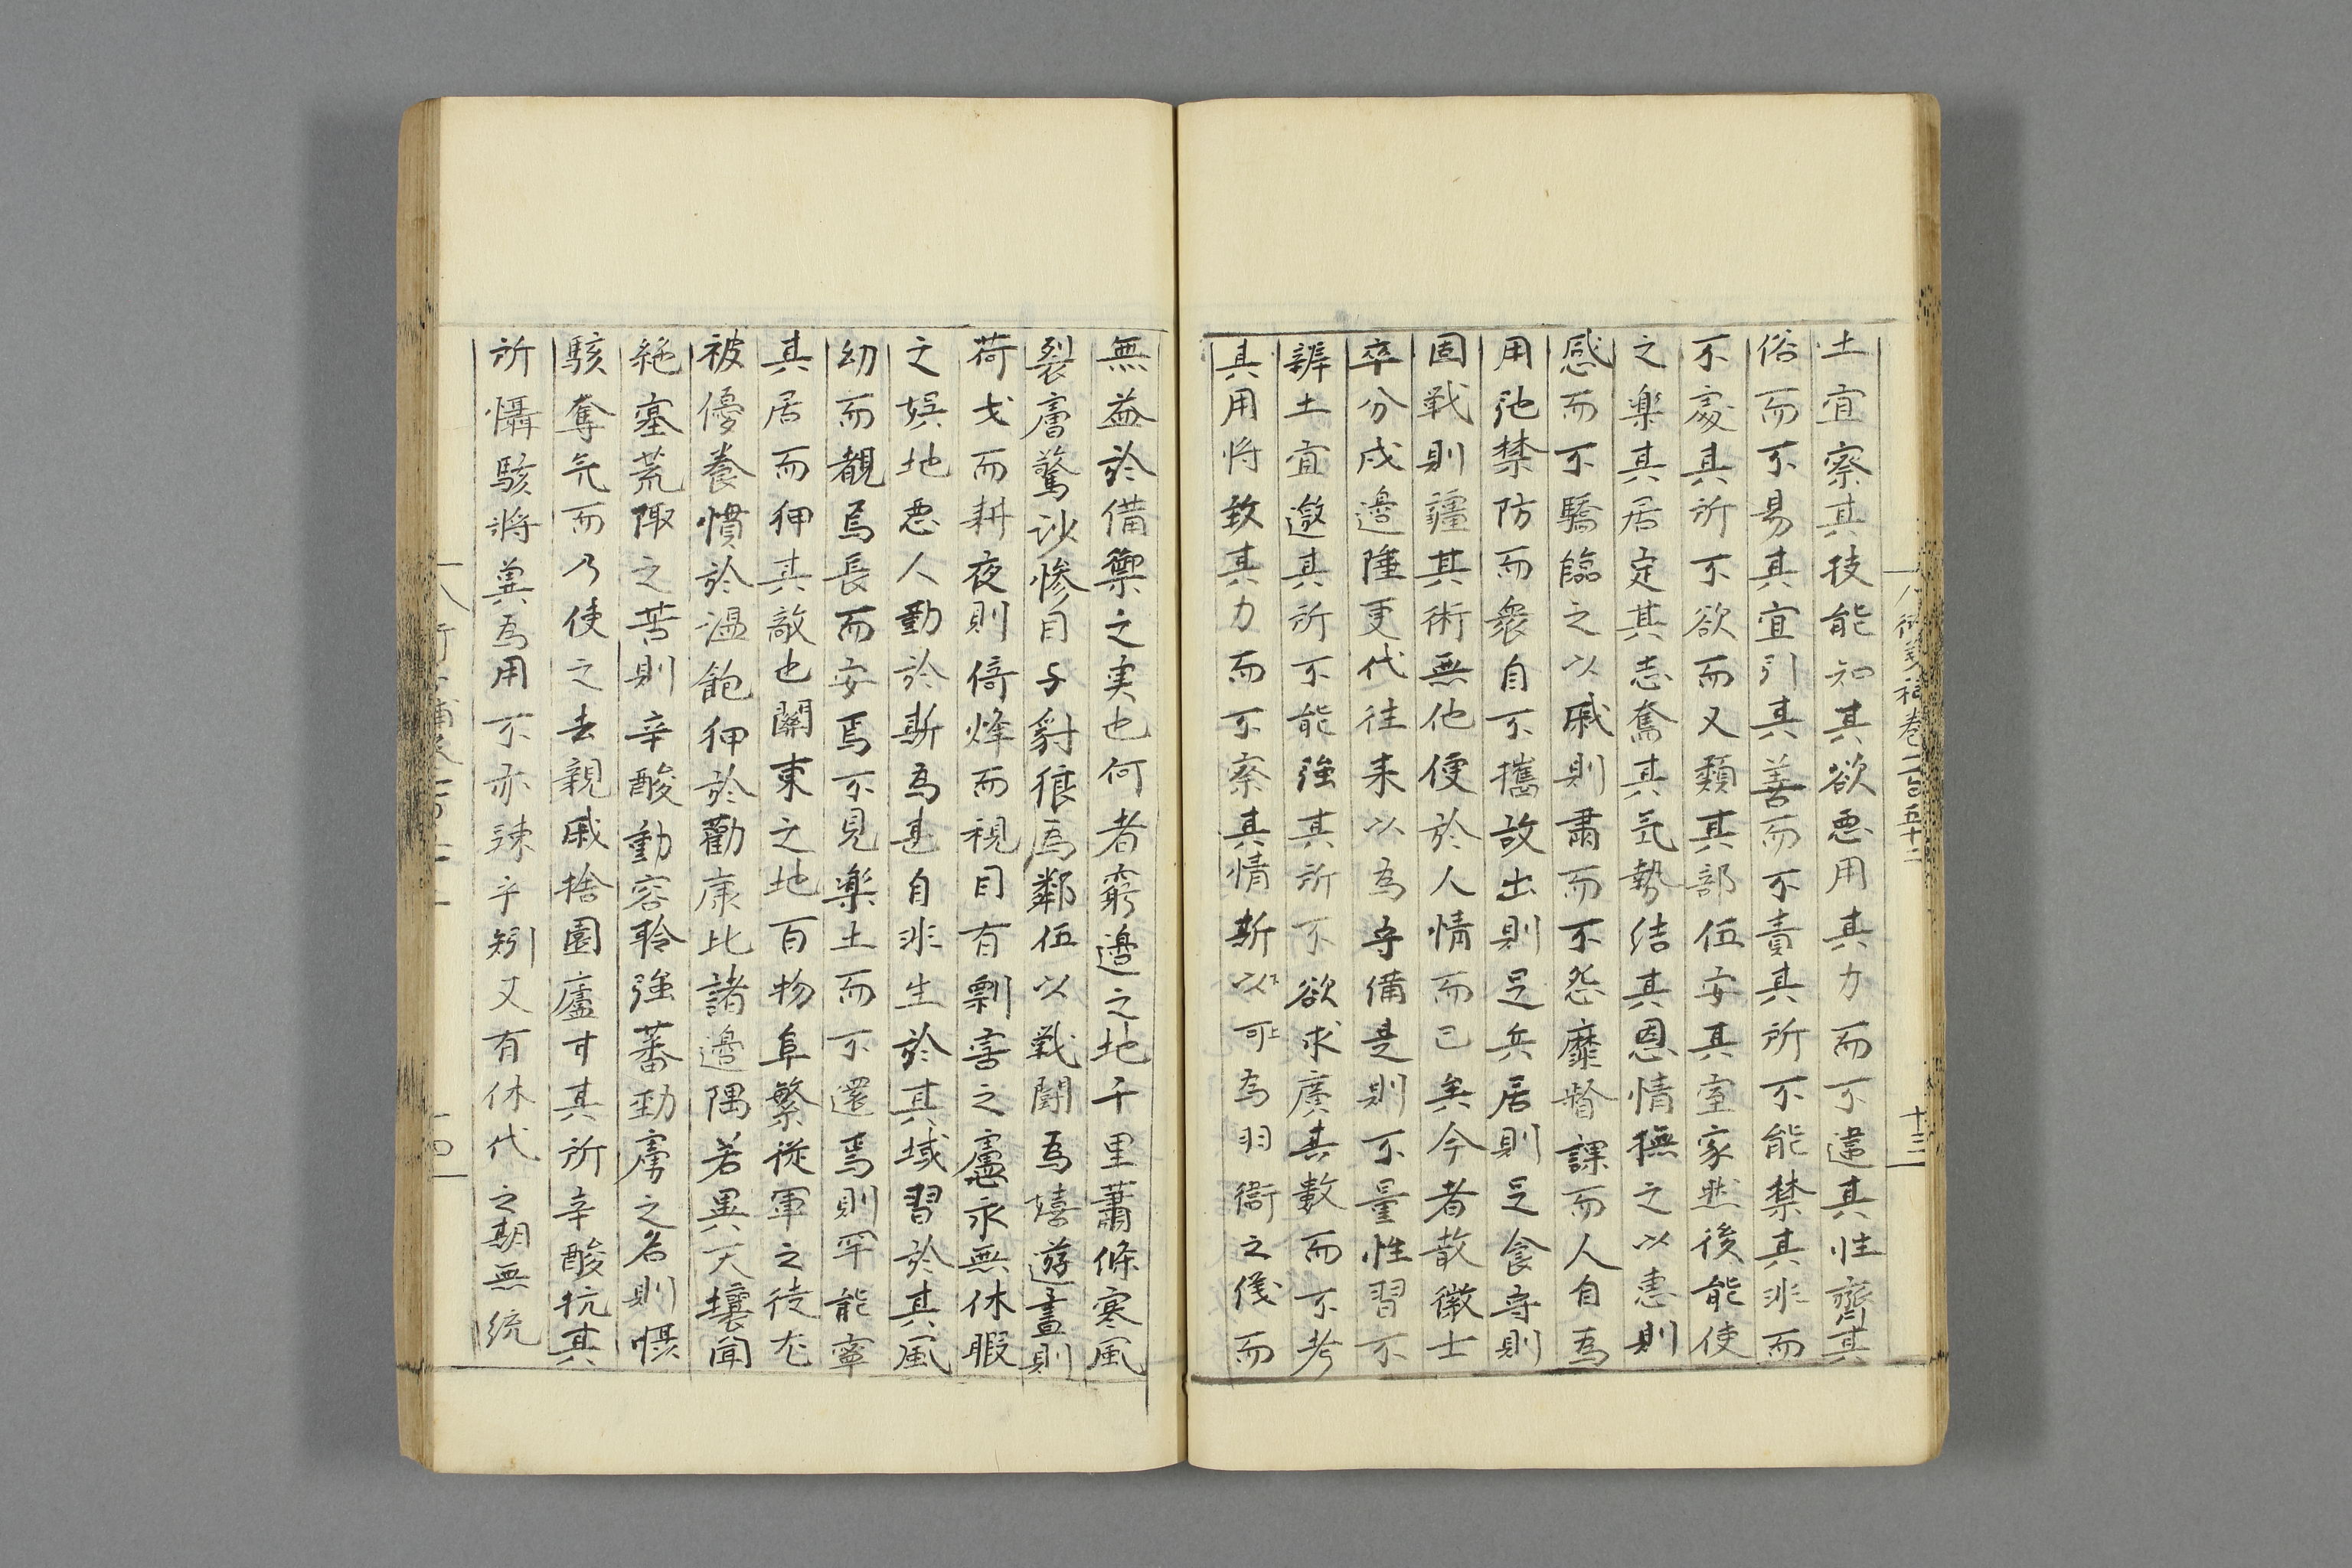 土宜察其技能知其欲惡用其力而不違其性齊其
俗而不易其宜引其善而不責其所不能禁其非而
不處其所不欲而又類其部伍安其室家然後能使
之楽其居定其志奮其氣勢结其恩情撫之以恵則
感而不驕臨之以威則肅而不怨靡督課而人自為
用弛禁防而衆自不攜故出則足兵居則足食守則
固戦則疆其術無他便於人情而已矣今者散徴士
卒分戍邉陲更代往来以為守備是則不量性習不
辨土宜邀其所不能强其所不欲求廣其數而不考
其用将致其力而不察其情斯以可為羽衛之儀而
無益於備禦之実也何者窮邉之地千里蕭條寒風
裂膚驚沙惨目与豺狼為鄰伍以戦闘為嬉遊晝則
荷戈而耕夜則倚烽而視日有剽害之慮永無休暇
之娯地悪人勤於斯為甚自非生於其域習於其風
幼而覩焉長而安焉不見楽土而不還焉則罕能寧
其居而狎其敵也關東之地百物阜繁従軍之徒尤
被優養慣於温飽狎於勸康比諸邉隅若異天壤聞
絶塞荒陬之苦則辛酸動容聆强蕃勁虜之名則慑
駭奪气而乃使之去親戚捨園廬甘其所辛酸抗其
所慴駭将冀為用不亦疎乎矧又有休代之期無统
八術義補巻一百五十二
十三
十四